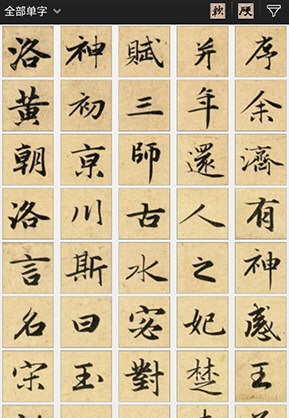 全部单字
洛神賦并序
黄初三年余
朝京師還濟
洛川古人有
言斯水之神
名曰宓妃感
宋玉對楚王